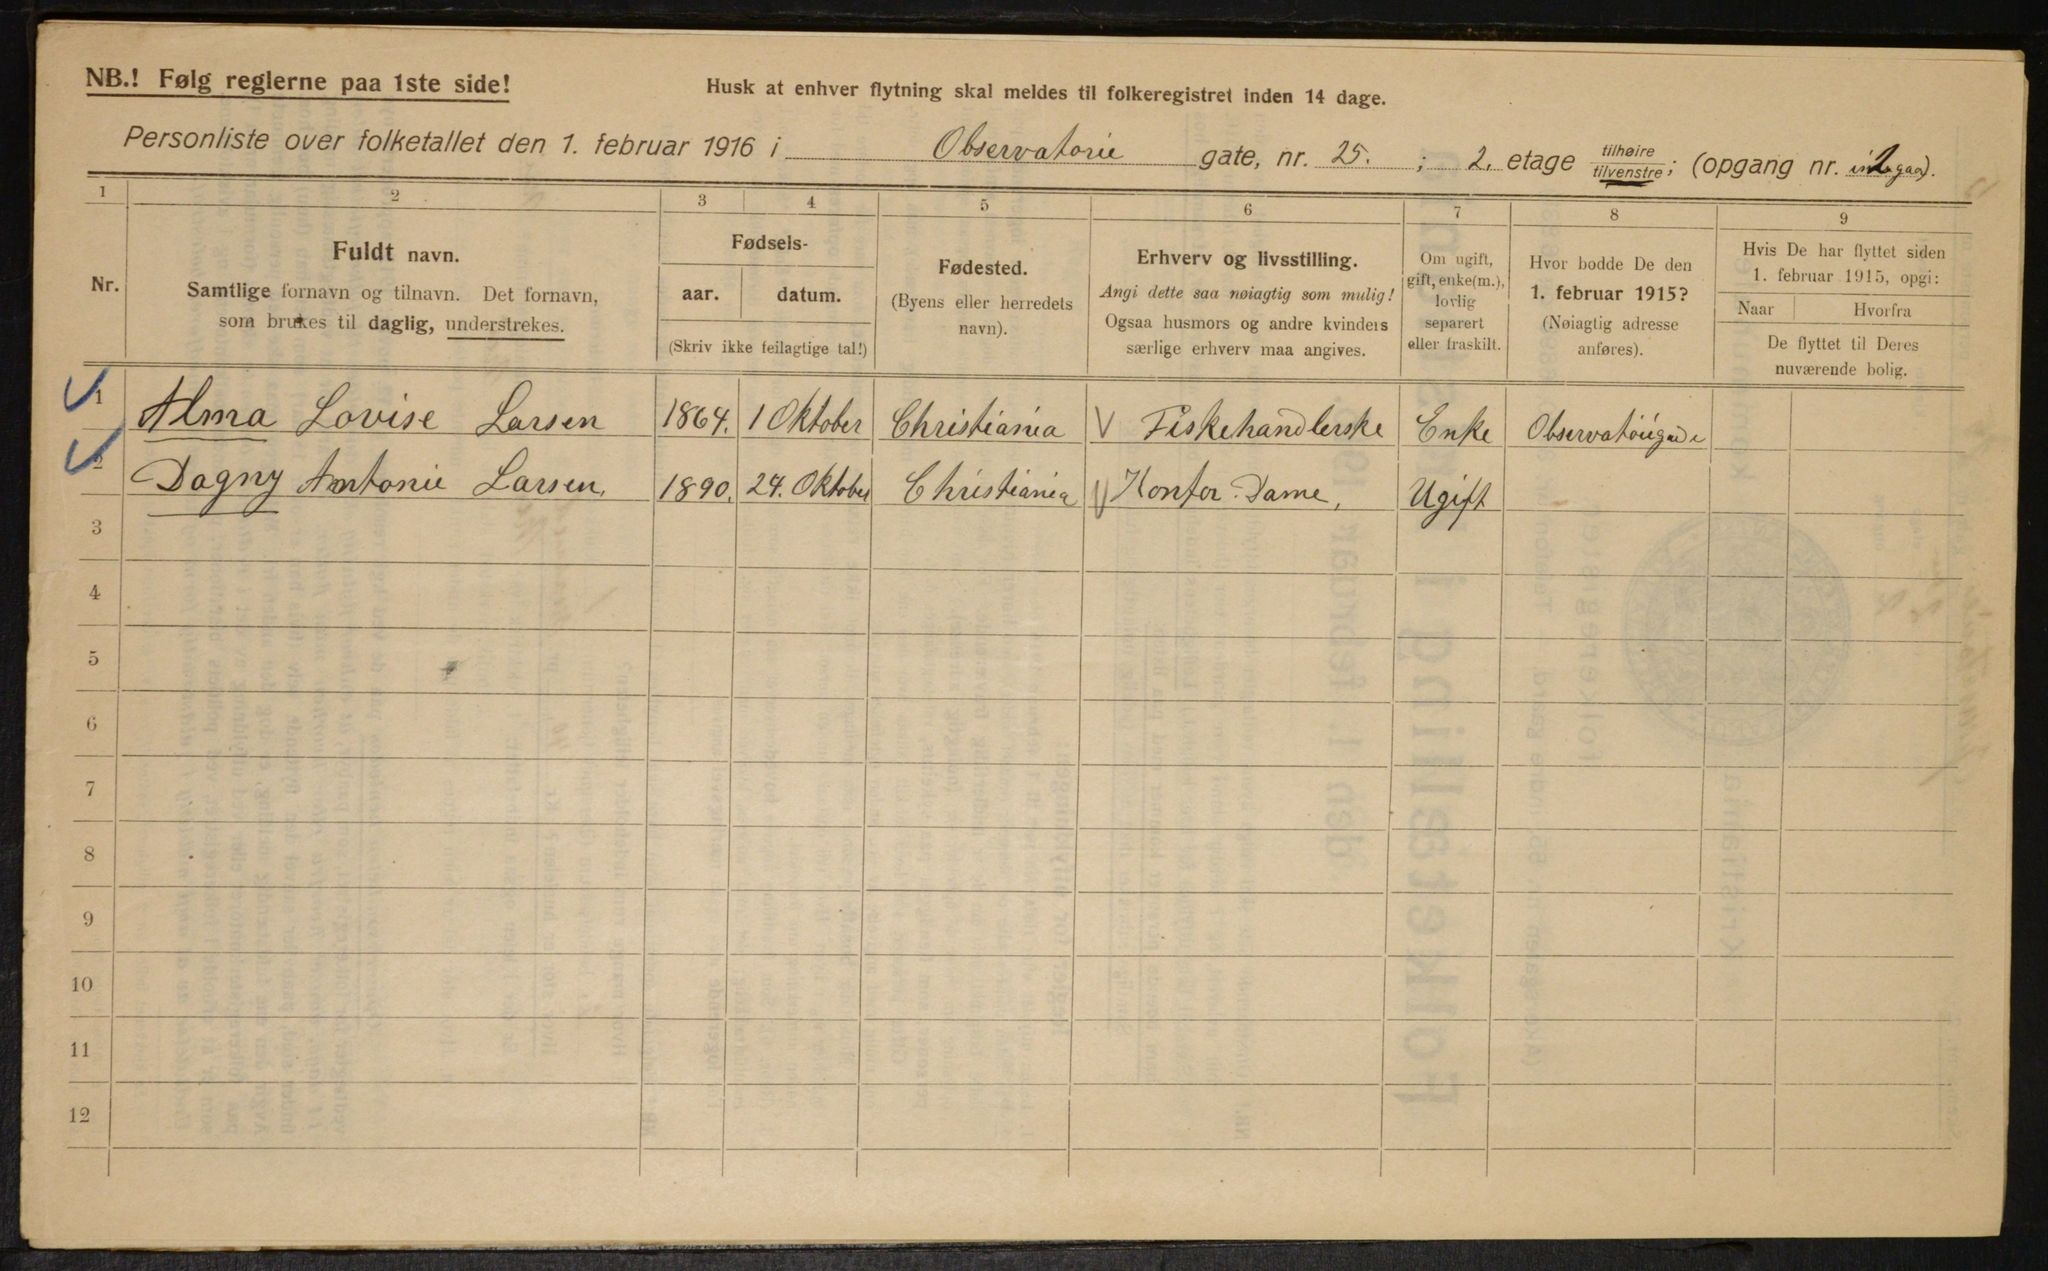 NB.! Følg reglerne paa 1ste side!
Husk at enhver flytning skal meldes til folkeregistret inden 14 dage.
Personliste over folketallet den 1. februar 1916 i Observatorie gate, nr. 25. ; 2. etage tilhøire tilvenstre; (opgang nr. 2).
1 2 3 4 5 6 7 8 9
Nr.
Fuldt navn.
Samtlige fornavn og tilnavn. Det fornavn,
som brukes til daglig, understrekes.
Fødsels-
aar. datum.
(Skriv ikke feilagtige tal!)
Fødested.
(Byens eller herredets
navn).
Erhverv og livsstilling.
Angi dette saa nøiagtig som mulig!
Ogsaa husmors og andre kvinders
særlige erhverv maa angives.
Om ugift,
gift, enke(m.),
lovlig
separert
eller fraskilt.
Hvor bodde De den
1. februar 1915?
(Nøiagtig adresse
anføres).
Hvis De har flyttet siden
1. februar 1915, opgi:
Naar Hvorfra
De flyttet til Deres
nuværende bolig.
1 Alma Lovise Larsen 1864. 1 Oktober Christiania Fiskehandlerske Enke Observatoriegade
2 Dagny Antonie Larsen, 1890. 24. Oktober Christiania Kontor-Dame, Ugift
3
4
5
6
7
8
9
10
11
12